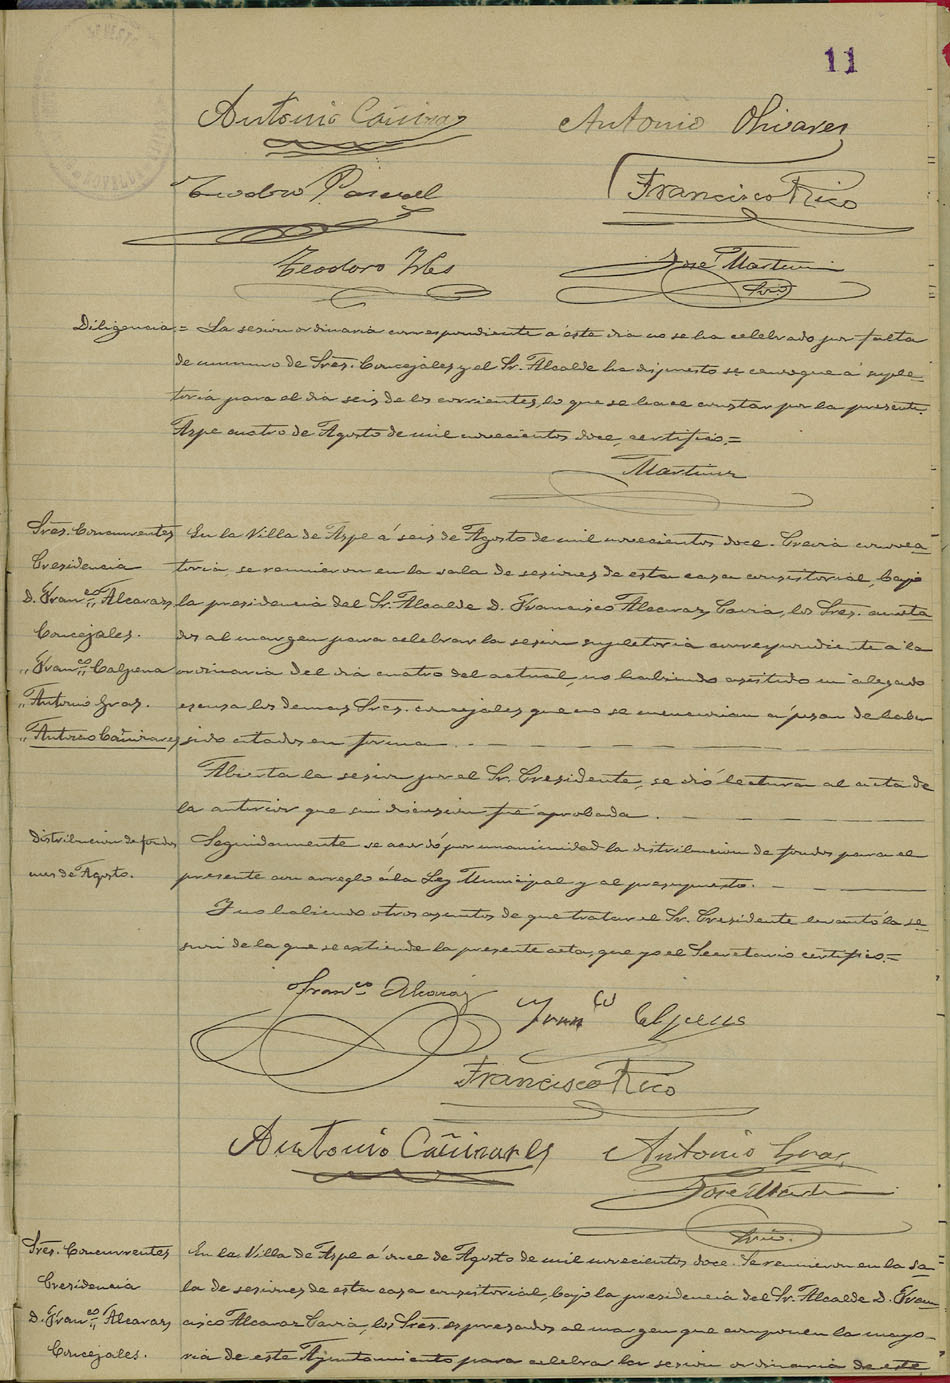 11
Antonio Cañizares
Antonio Olivares
Teodoro Pascual
Francisco Rico
Teodoro Yles
José Martinez
Srio
Diligencia.= La sesion ordinaria correspondiente á éste dia no se ha celebrado por falta
de número de Sres. Concejales y el Sr. Alcalde ha dispuesto se convoque á suple-
toria para el dia seis de los corrientes, lo que se hace constar por la presente.
Aspe cuatro de Agosto de mil novecientos doce, certifico.=
Martinez
Sres. Concurrentes
Presidencia
D. Franco Alcaraz
Concejales.
" Franco Calpena
" Antonio Gras.
" Antonio Cañizares
En la Villa de Aspe á seis de Agosto de mil novecientos doce. Previa convoca
toria, se reunieron en la sala de sesiones de esta casa consistorial, bajo
la presidencia del Sr. Alcalde D. Francisco Alcaraz Pavia, los Sres. anota
dos al margen para celebrar la sesion supletoria correspondiente á la
ordinaria del dia cuatro del actual, no habiendo asistido ni alegado
escusa los demas Sres. concejales que no se mencionan apesar de haber
sido citados en forma.
Abierta la sesion por el Sr. Presidente, se dió lectura al acta de
la anterior que sin discusion fué aprobada.
Distribucion de fondos
mes de Agosto.
Seguidamente se acordó por unanimidad la distribucion de fondos para el
presente con arreglo á la Ley Municipal y al presupuesto.
Y no habiendo otros asuntos de que tratar el Sr. Presidente levantó la se-
sion de la que se extiende la presente acta, que yo el Secretario certifico.=
Franco Alcaraz
Franco Calpena
Francisco Rico
Antonio Cañizares
Antonio Gras
José Martinez
Srio.
Sres. Concurrentes
Presidencia
D. Franco Alcaraz
Concejales.
En la Villa de Aspe á once de Agosto de mil novecientos doce. Se reunieron en la sa-
la de sesiones de esta casa consistorial, bajo la presidencia del Sr. Alcalde D. Fran
cisco Alcaraz Pavia, los Sres. espresados al margen que componen la mayo-
ria de este Ayuntamiento para celebrar la sesion ordinaria de este